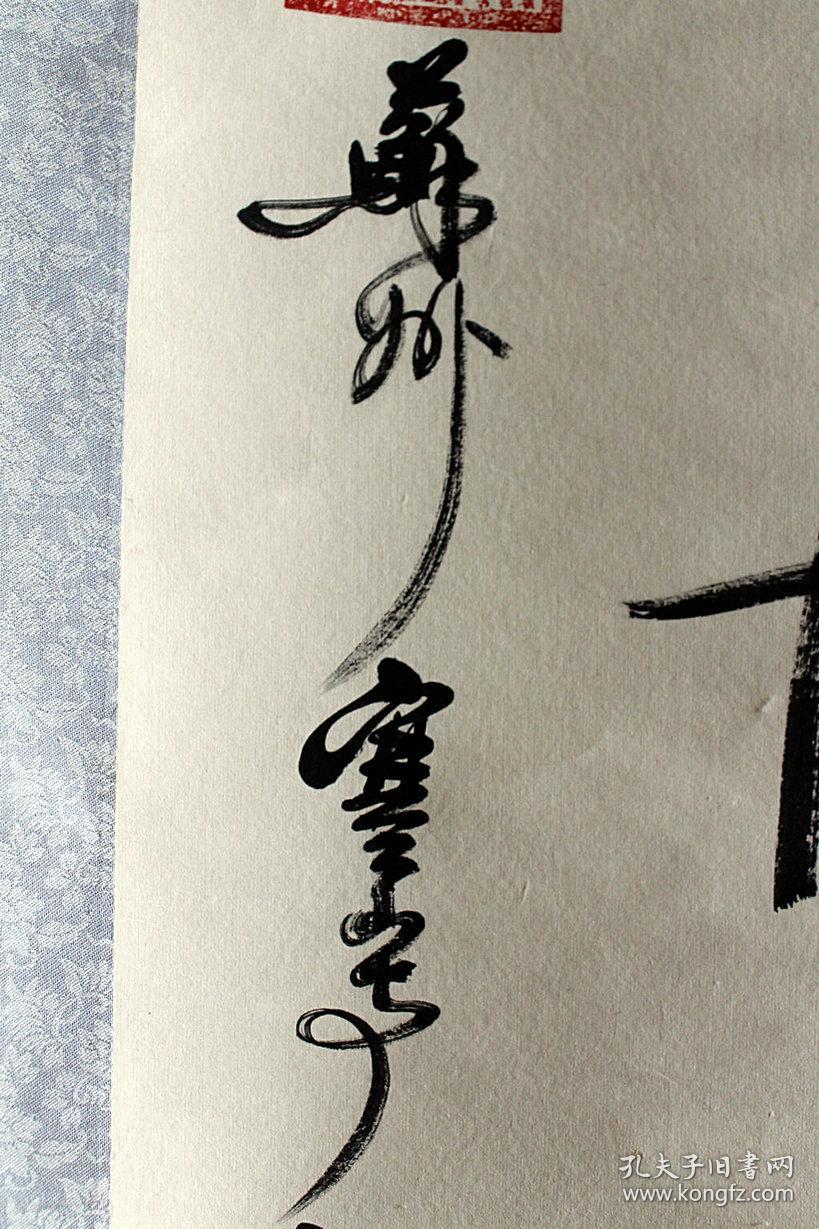 蘇州
寒山寺
孔夫子旧書网
www.kongfz.com